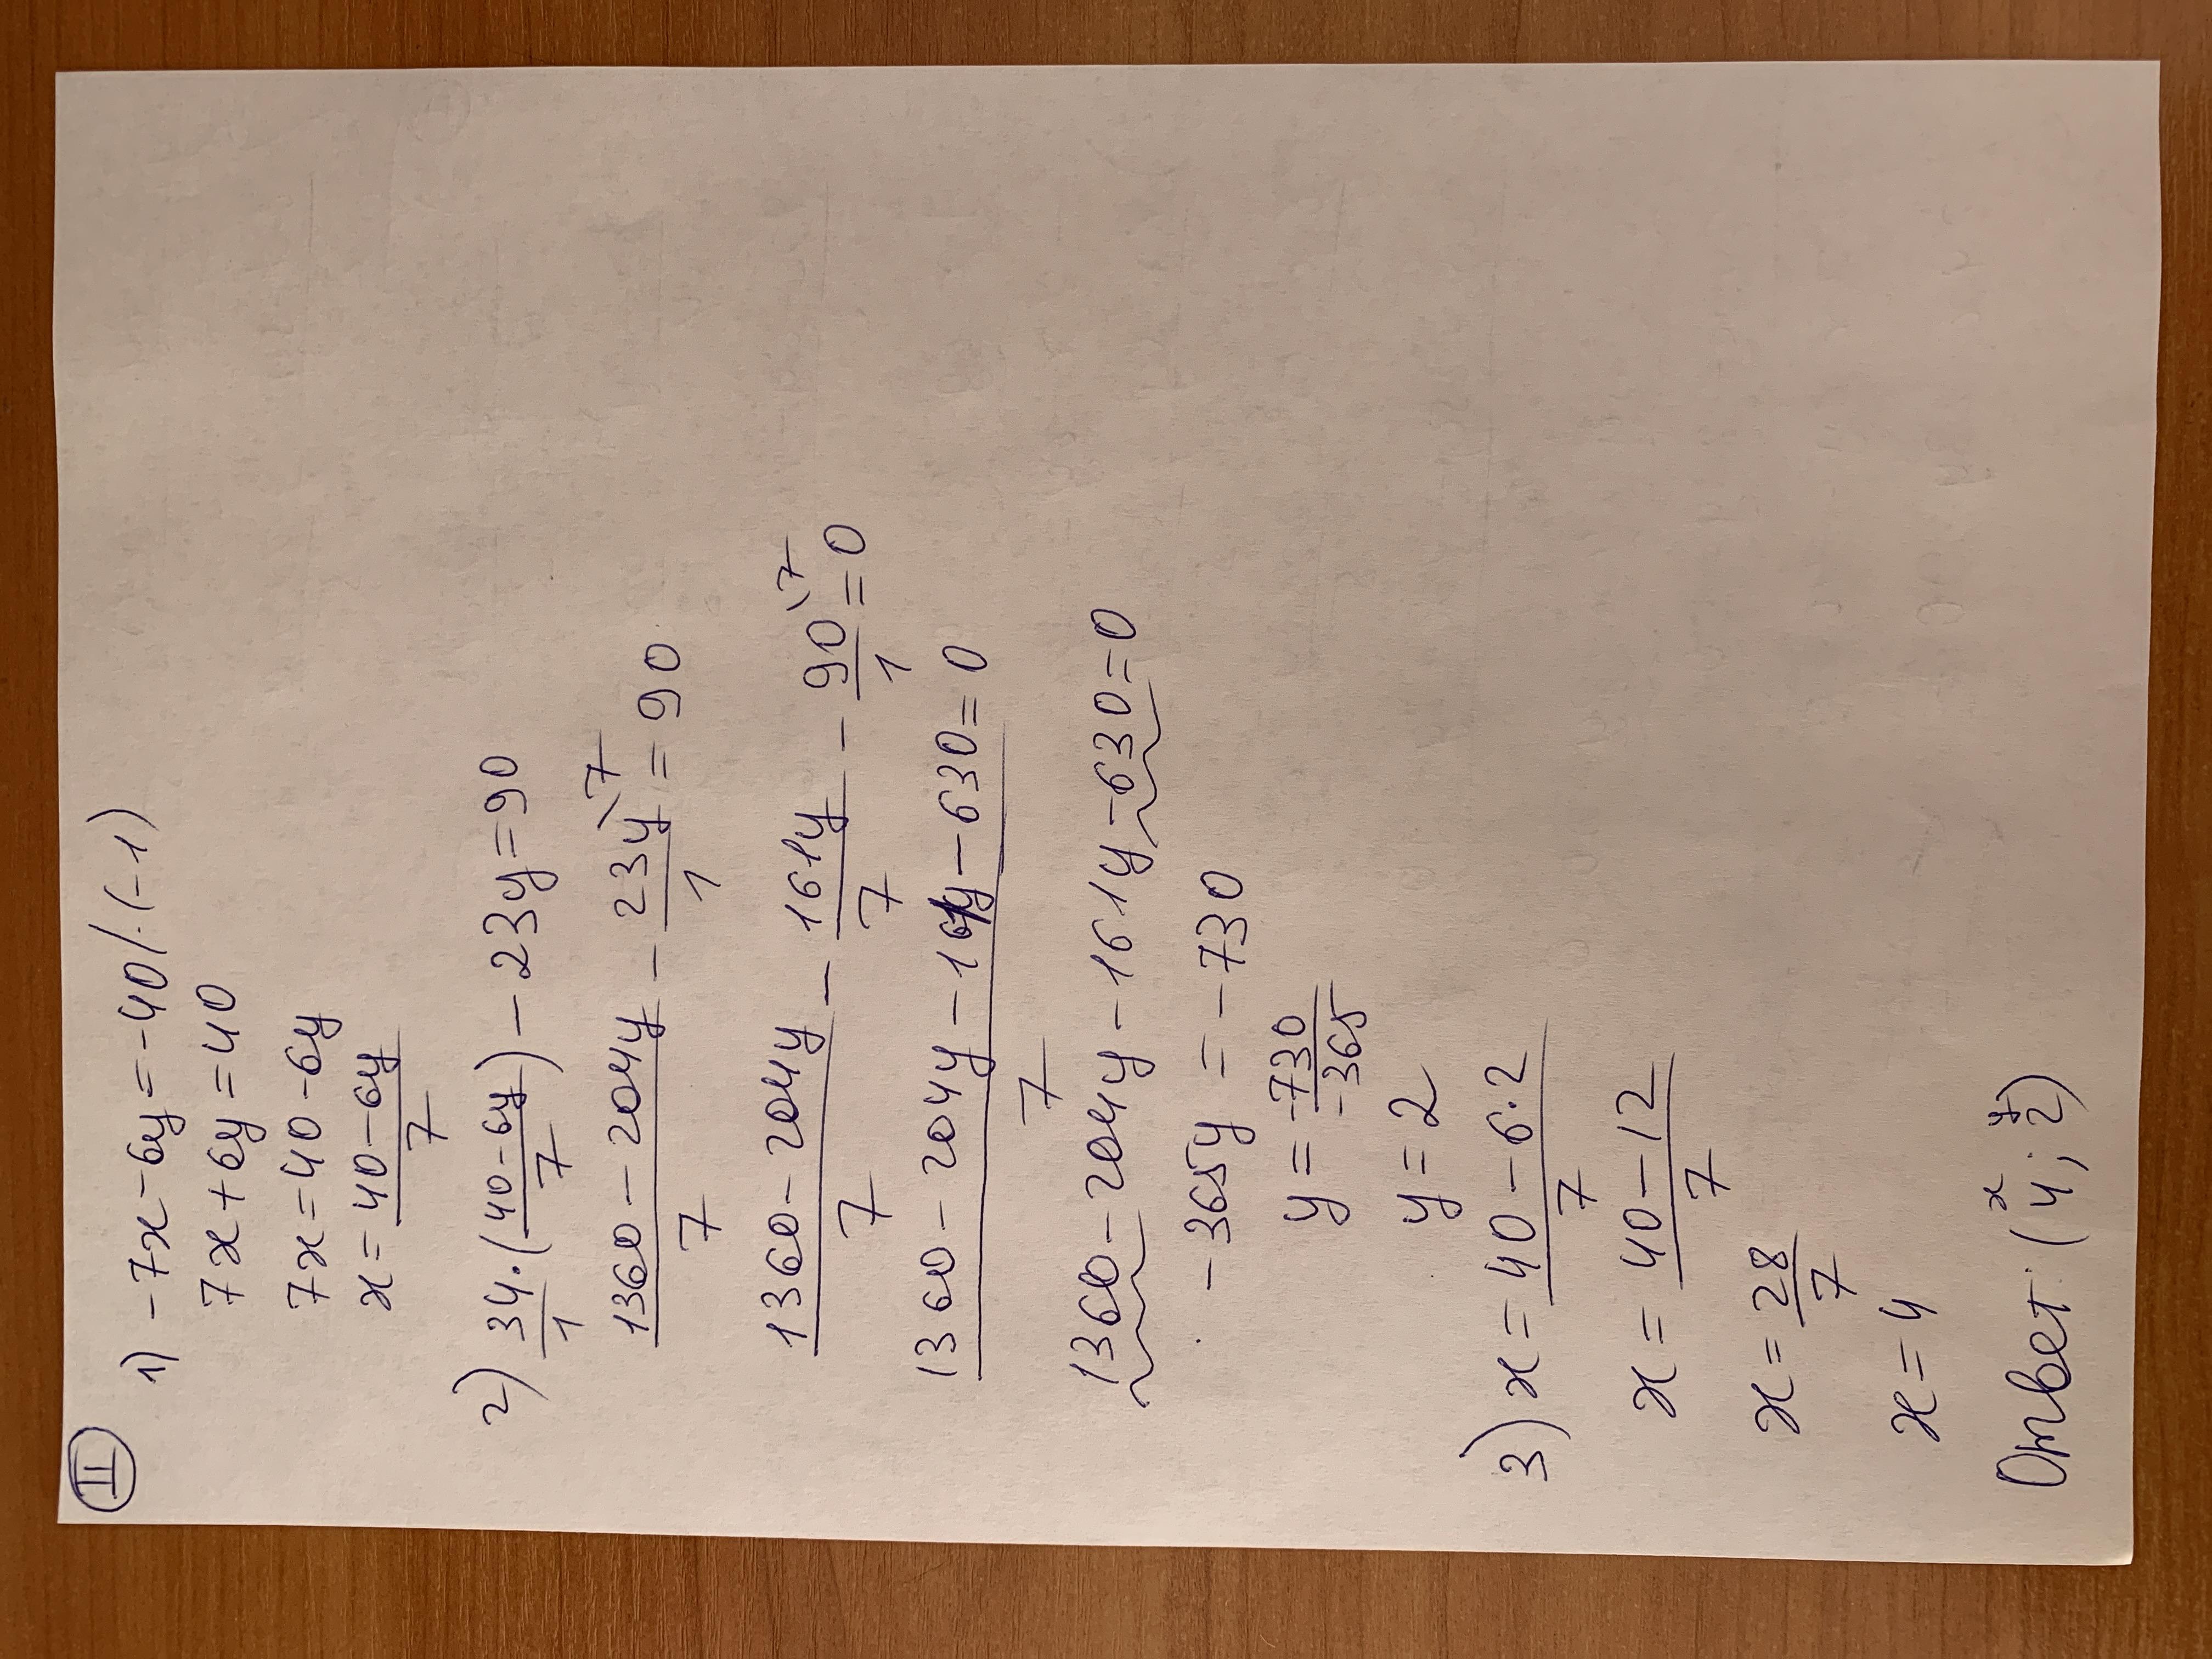 II
1) -7x-6y=-40/·(-1)
7x+6y=40
7x=40-6y
x=\frac{40-6y}{7}
2) \frac{34}{1}·(\frac{40-6y}{7})-23y=90
\frac{1360-204y}{7}-\frac{23y\7}{1}=90
\frac{1360-204y}{7}-\frac{161y}{7}-\frac{90\7}{1}=0
\frac{1360-204y-161y-630}{7}=0
1360-204y-161y-630=0
-365y=-730
y=\frac{-730}{-365}
y=2
3) x=\frac{40-6·2}{7}
x=\frac{40-12}{7}
x=\frac{28}{7}
x=4
x y
Ответ: (4; 2)